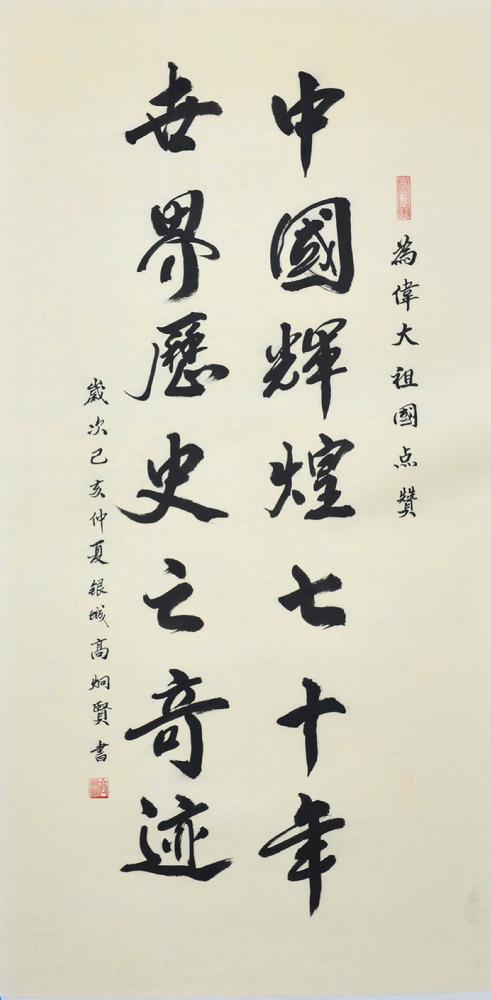 為偉大祖國点贊
中國輝煌七十年
世界歷史之奇迹
歲次己亥仲夏银城高炯賢書